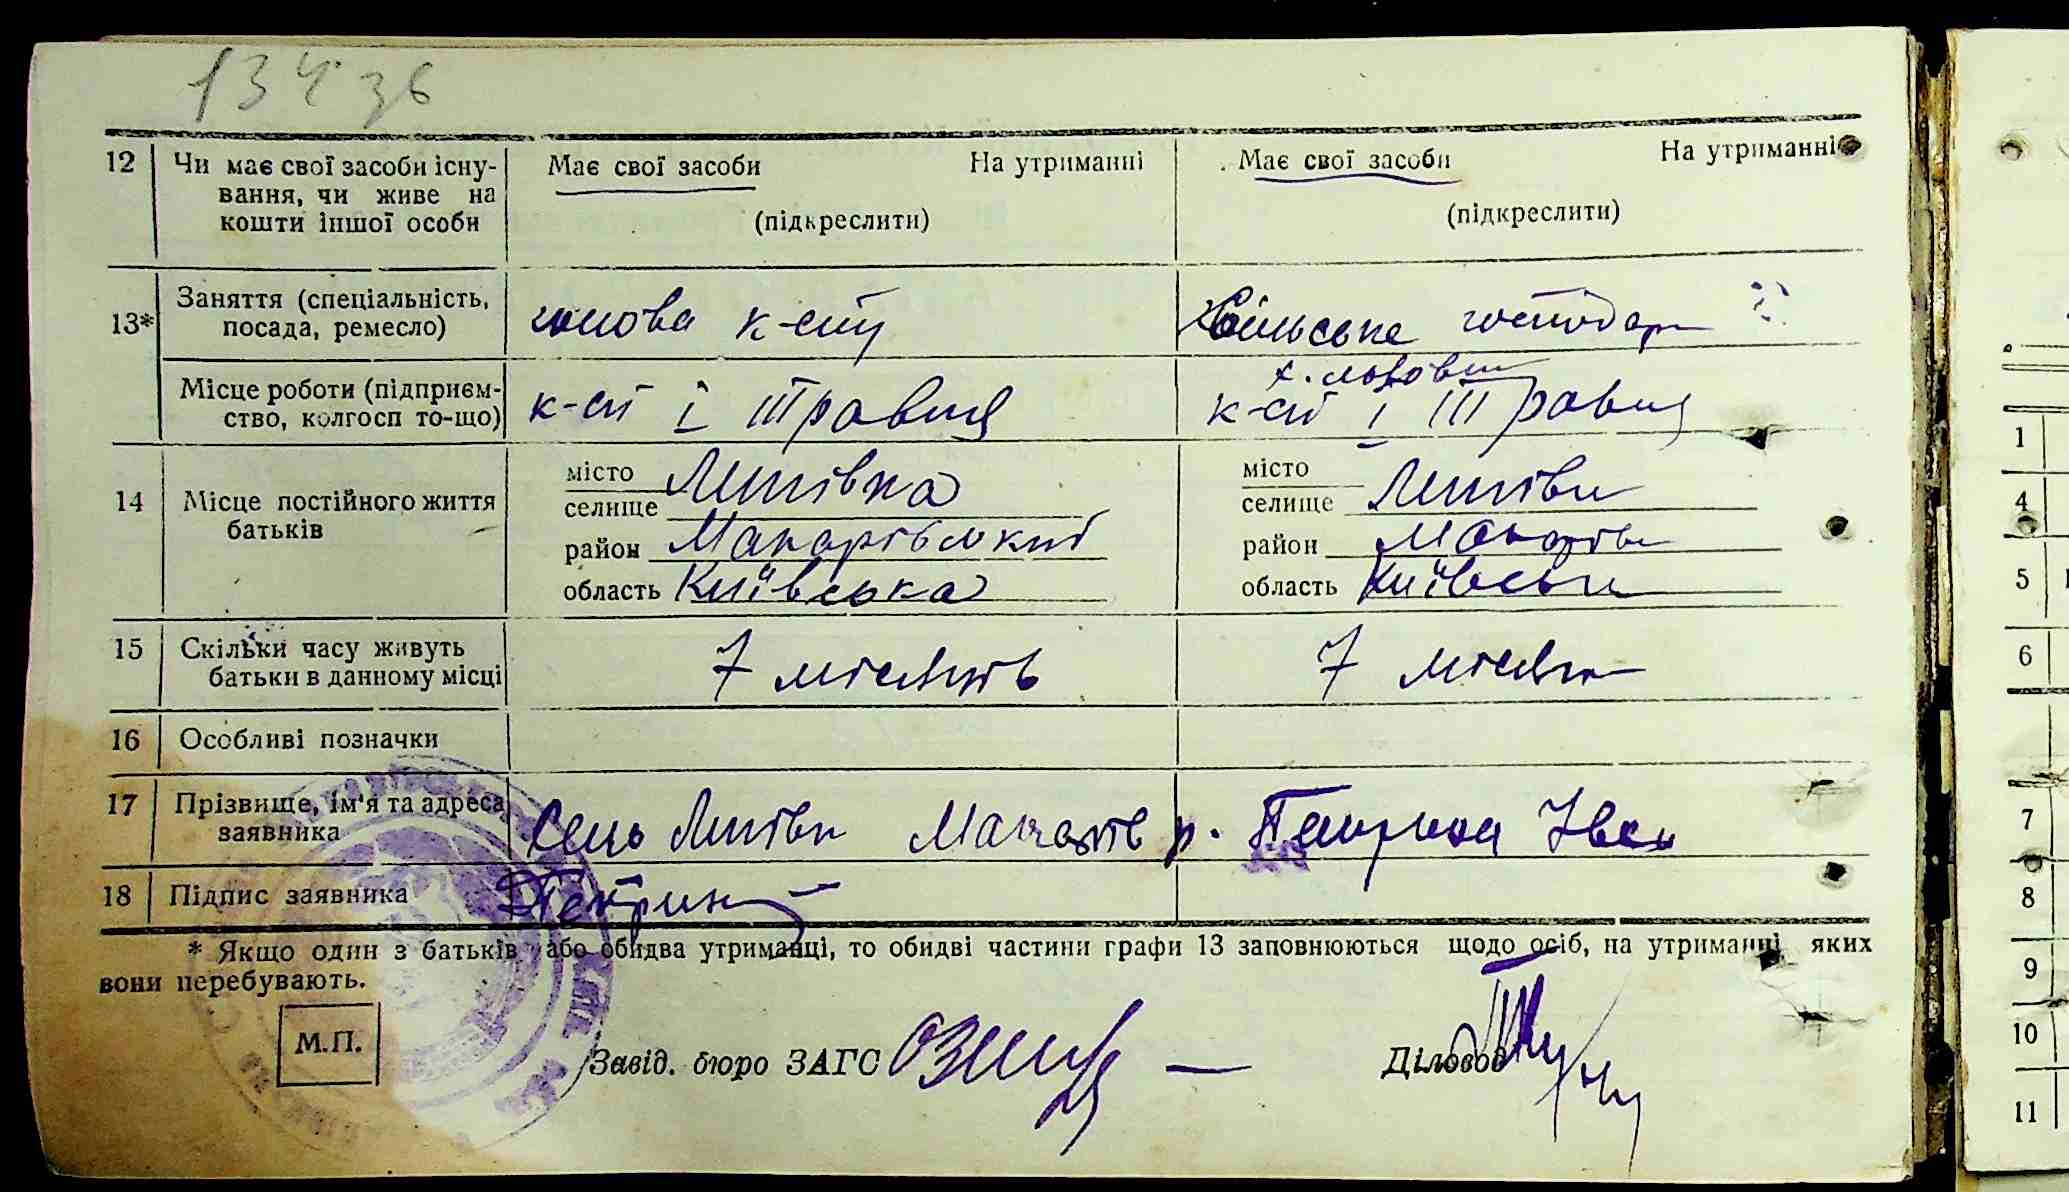 134 зв
12 Чи має свої засоби існу- Має свої засоби На утриманні Має свої засоби На утриманні
вання, чи живе на
кошти іншої особи (підкреслити) (підкреслити)
13* Заняття (спеціальність,
посада, ремесло) голова к-сту Сільське господар
Місце роботи (підприєм-
ство, колгосп то-що) к-сп І Травня к-сп І Травня
14 Місце постійного життя
батьків
місто
селище Липівка
район Макарівський
область Київська
місто
селище Липівки
район Макарів
область Київськи
15 Скільки часу живуть
батьки в данному місці 7 місяців 7 місяц
16 Особливі позначки
17 Прізвище, ім'я та адреса
заявника Село Липівк Макарів р. Іван
18 Підпис заявника
* Якщо один з батьків або обидва утриманці, то обидві частини графи 13 заповнюються щодо осіб, на утриманні яких
вони перебувають.
М.П.
Завід. бюро ЗАГС Діловод
1
4
5
6
7
8
9
10
11